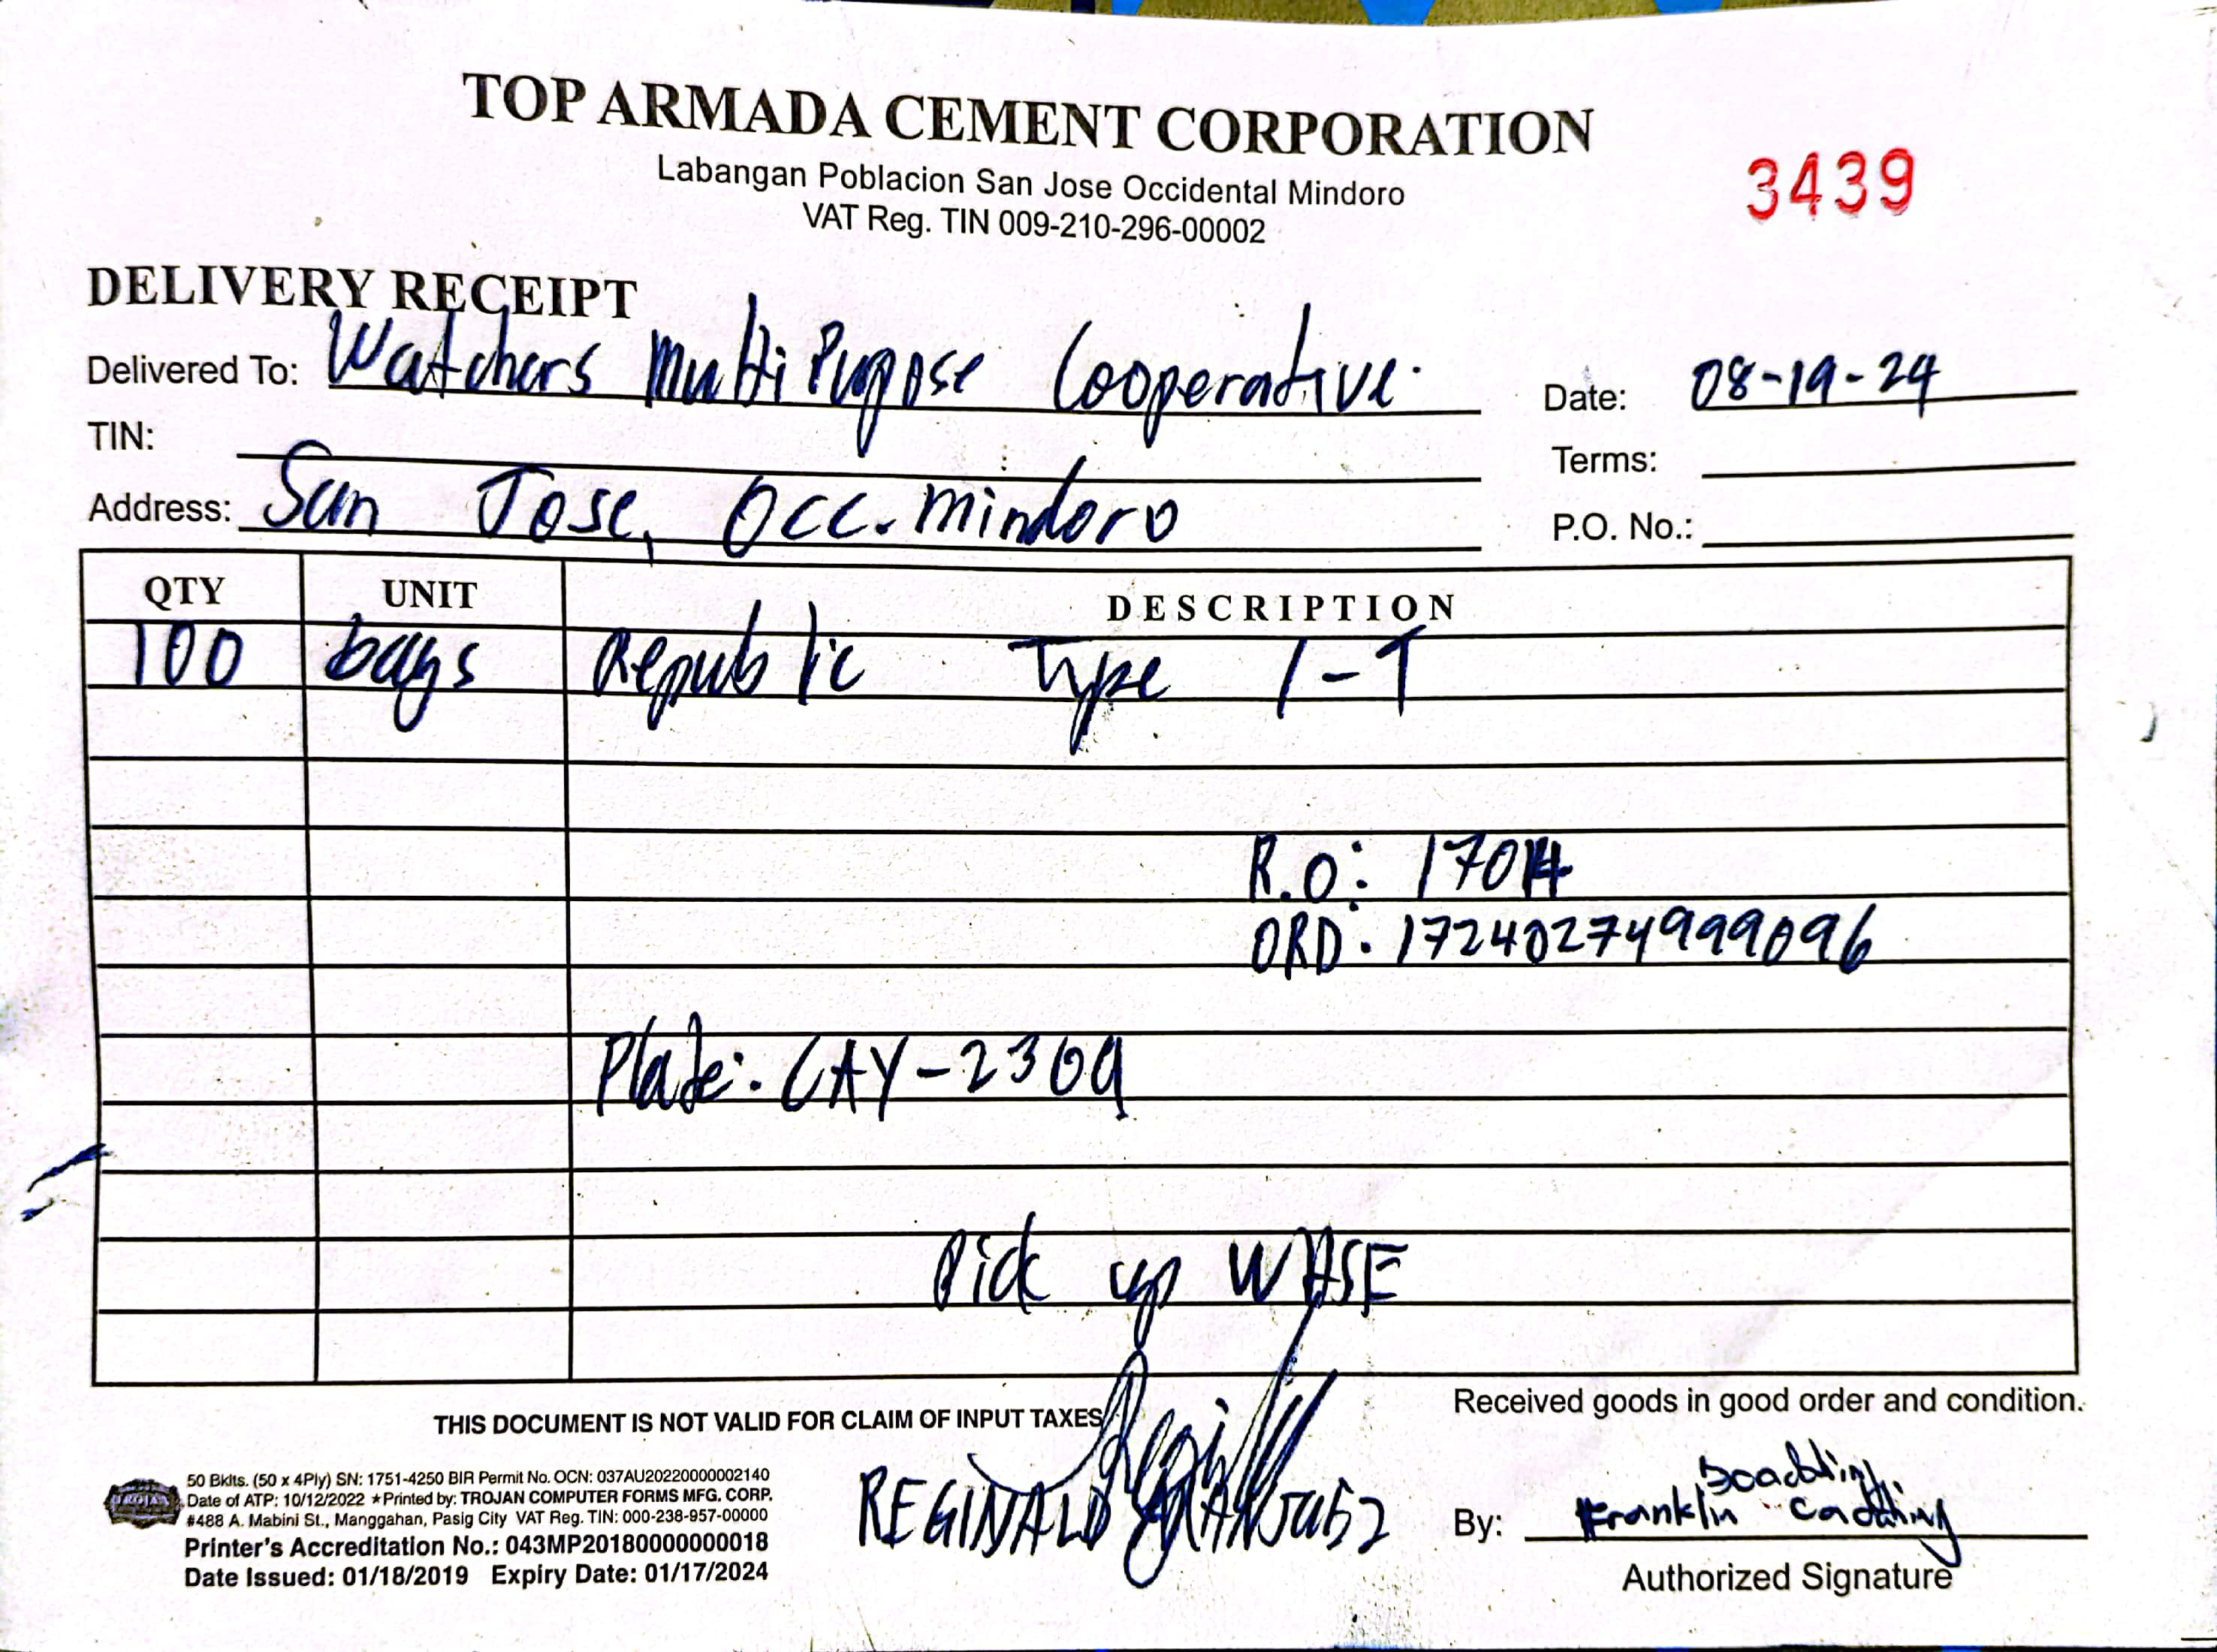 TOP ARMADA CEMENT CORPORATION
Labangan Poblacion San Jose Occidental Mindoro
VAT Reg. TIN 009-210-296-00002
3439
DELIVERY RECEIPT
Delivered To: Watchers MultiPurpose Cooperative.
Date: 08-19-24
TIN:
Terms:
Address: San Jose, Occ. Mindoro
P.O. No.:
QTY UNIT DESCRIPTION
100 bags Republic Type 1-T
R.O:
ORD: 17240274999096
Plate: CAY-2309
Pick up WHSE
THIS DOCUMENT IS NOT VALID FOR CLAIM OF INPUT TAXES
Received goods in good order and condition.
50 Bklts. (50 x 4Ply) SN: 1751-4250 BIR Permit No. OCN: 037AU20220000002140
TROJAN Date of ATP: 10/12/2022 ★Printed by: TROJAN COMPUTER FORMS MFG. CORP.
#488 A. Mabini St., Manggahan, Pasig City VAT Reg. TIN: 000-238-957-00000
Printer's Accreditation No.: 043MP20180000000018
Date Issued: 01/18/2019 Expiry Date: 01/17/2024
REGINALD
By: Franklin
Authorized Signature